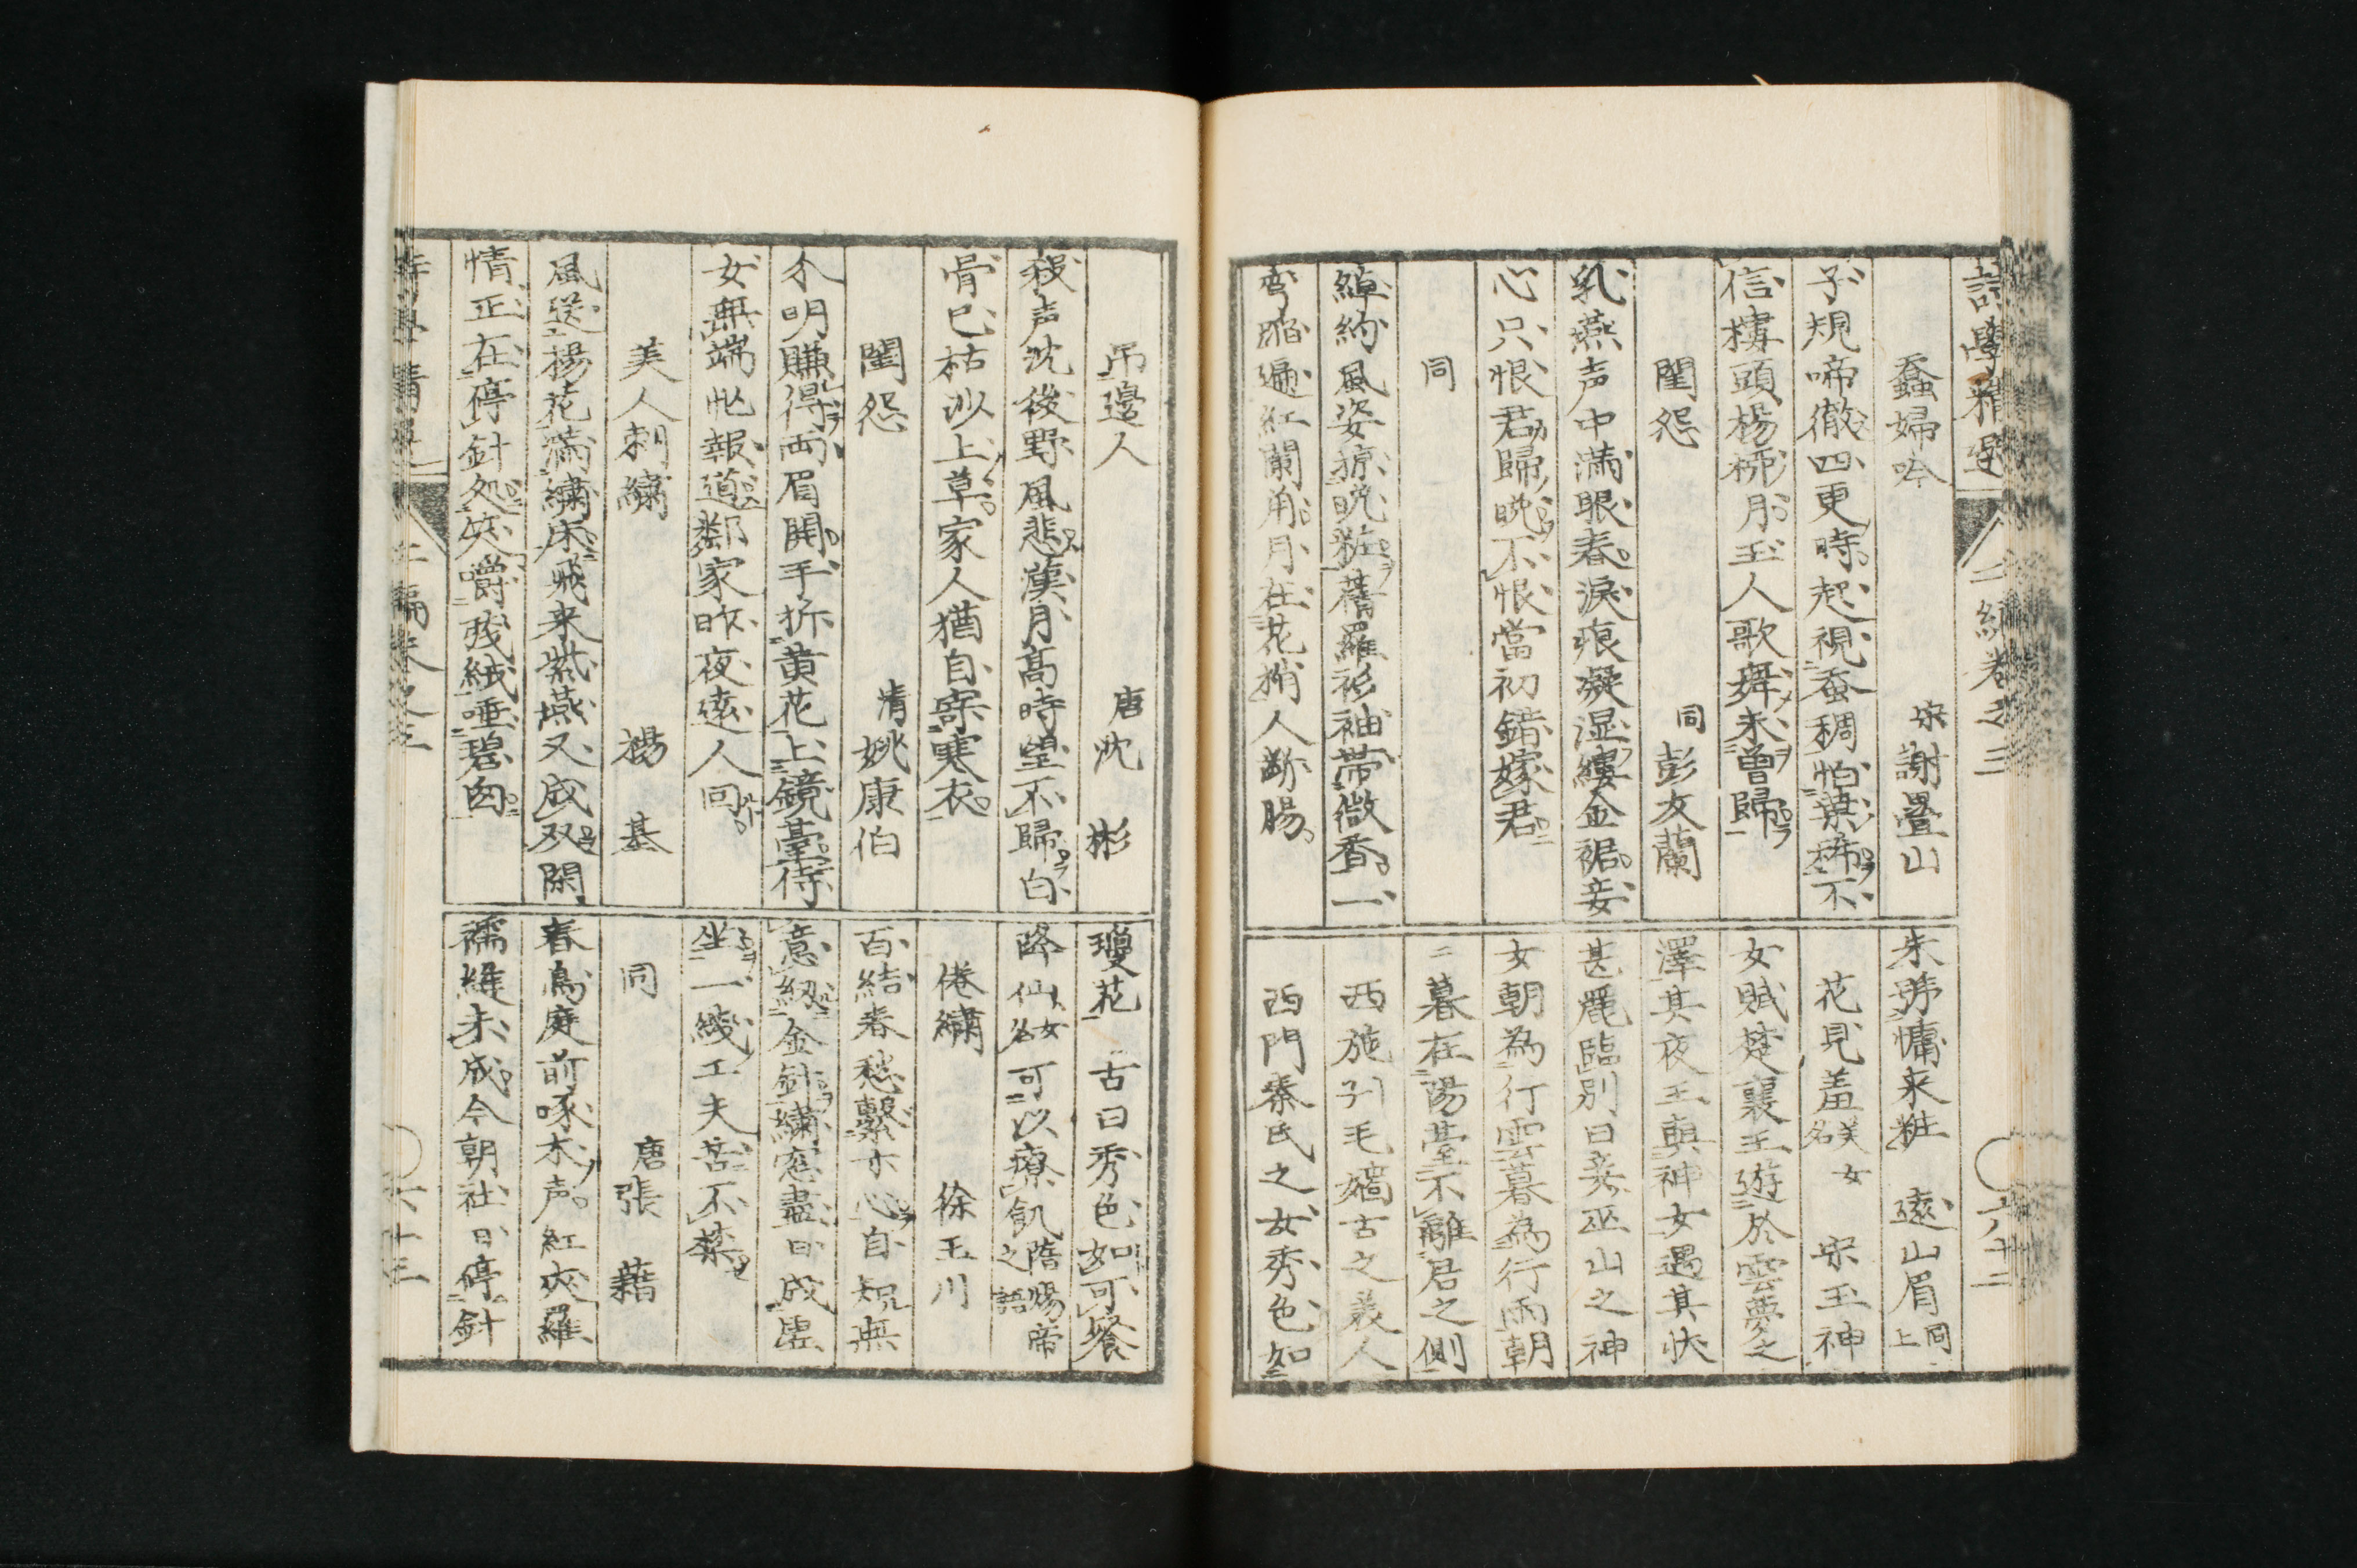 蠶婦吟　宋謝疊山
子規啼徹四更時起視蚕稠怕葉稀不
信樓頭楊柳月玉人歌舞未曽歸
閨怨　同彭文蘭
乳燕声中満眼春淚痕凝湿縷金裾妾
心只恨君歸晩不恨當初錯嫁君
同
綽約風姿掠晩粧薄羅衫袖帯微香一
弯遍紅闌角月在花梢人断腸
朱脣慵来粧　遠山眉同上
花見羞美女名　宋玉神
女賦楚襄王遊於雲夢之
澤其夜王與神女遇其状
甚麗臨別曰妾巫山之神
女朝為行雲暮為行雨朝
暮在陽䑓不離君之側
西施子毛嬙古之美人
西門秦氏之女秀色如
弔邊人　唐沈　彬
殺声沈後野風悲漢月髙時望不歸白
骨已枯沙上草家人猶自寄寒衣
閨怨　清姚康伯
不明賺得両眉開手折黄花上鏡䑓侍
女無端忙報道鄰家昨夜遠人回
美人刺繍　楊　基
風送楊花満繍床飛来紫燕又成双閑
情正在停針処笑嚼残絨唾碧窓
瓊花　古曰秀色如可餐
降仙女名可以療飢隋煬帝之語
倦繍　徐玉川
百結春愁繋寸心自知無
意紉金針繍窓盡日成畳
坐一綫工夫苦不禁
同　唐張　藉
春鳥庭前啄木声紅夾羅
襦縫未成今朝社日停針